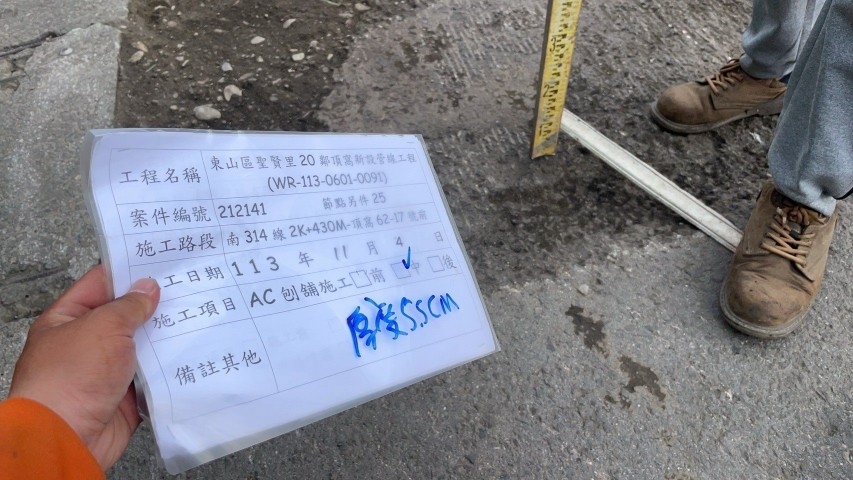 工程名稱 東山區聖賢里20鄰頂窩新設管線工程
(WR-113-0601-0091)
案件編號 212141 節點另件25
施工路段 南314線2K+430M-頂窩62-17號前
工日期 113年11月4日
施工項目 AC刨鋪施工□前 ☑中 □後
備註其他 厚度5.5CM